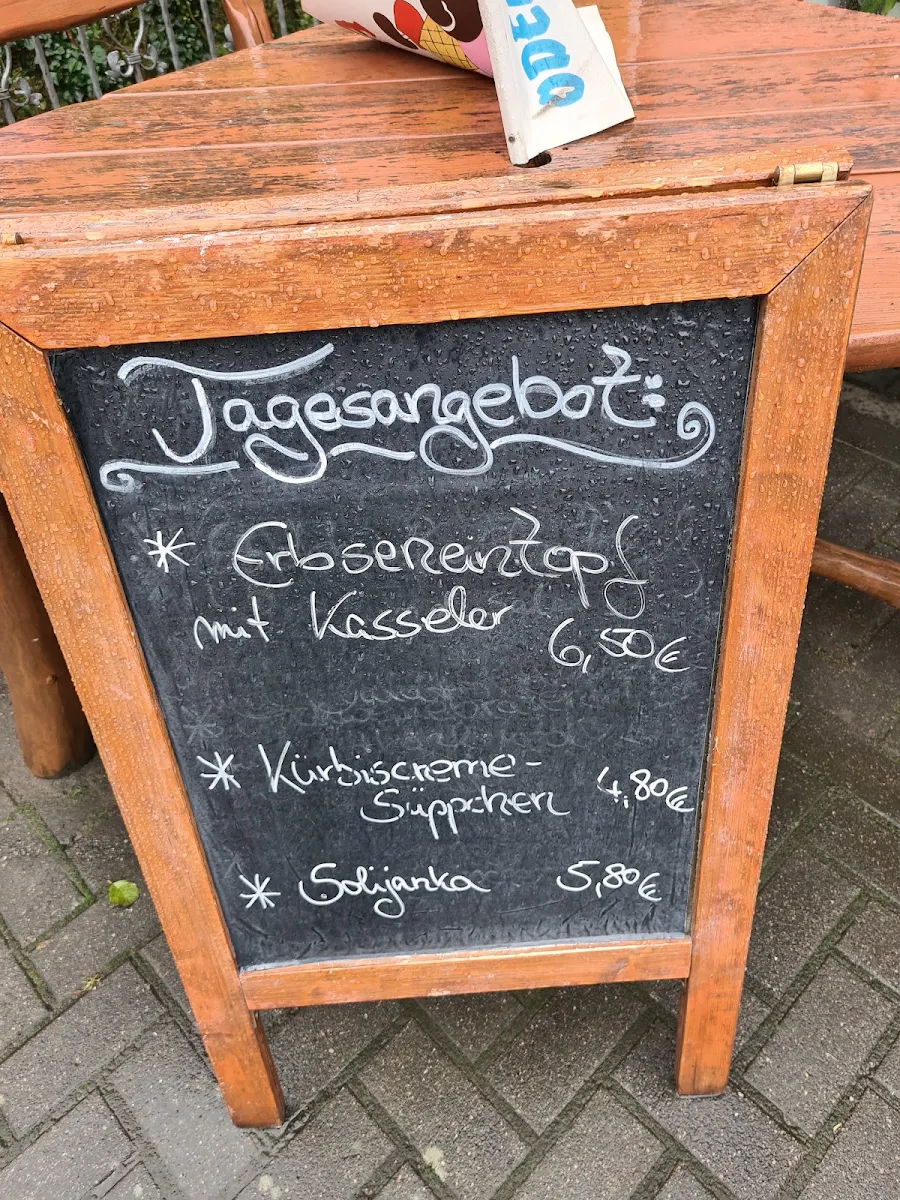 Tagesangebot:
* Erbseneintopf
mit Kasseler
6,50€
* Kürbiscreme-
Süppchen 4,80€
* Solijanka 5,80€